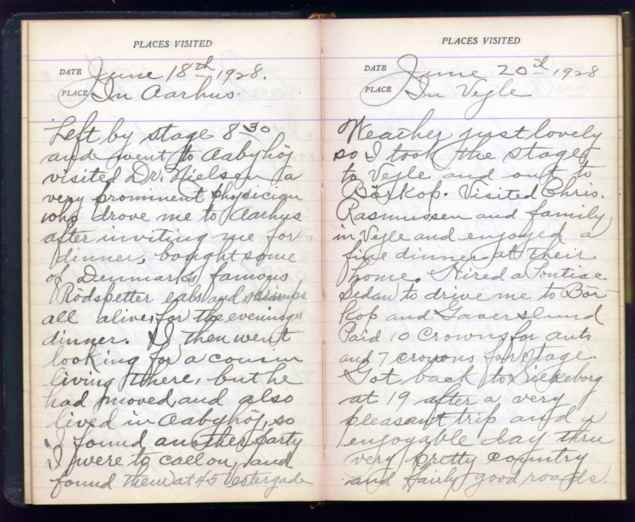 PLACES VISITED
DATE June 18th 1928.
PLACE In Aarhus.
Left by stage 8 30
and went to Aabyhöj
visited Dr. Nielsen a
very prominent physician
who drove me to Aarhus
after inviting me for
dinner, bought some
of Denmarks famous
Rödspetter eels and shrimps
all alive, for the evenings
dinner. I then went
looking for a cousin
living there, but he
had moved and also
lived in Aabyhöj, so
I found another party
I were to call on, and
found them at 45 Vestergade
PLACES VISITED
DATE June 20th 1928
PLACE In Vejle
Weather just lovely
so I took the stage
to Vejle and out to
Börkop. Visited Chris.
Rasmussen and family
in Vejle and enjoyed a
fine dinner at their
home. Hired a Pontiac
Sedan to drive me to Bör
kop and Gaverslund
Paid 10 Crowns for auto
and 7 crowns for stage
Got back to Silkeborg
at 19 after a very
pleasant trip and a
enjoyable day thru
very pretty country
and fairly good roads.